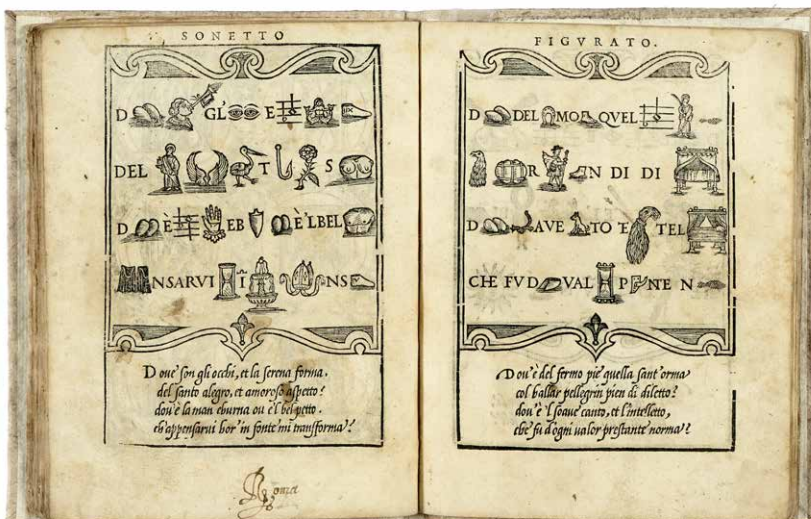 SONETTO
D GL' E
DEL T S
D È EB È'LBEL
NSARVI Ĩ NS
Doue son gli occhi, et la serena forma,
del santo alegro, et amoroso aspetto?
dov'è la man eburna ou'è'l bel petto.
ch'appensarui hor in fonte mi transforma?
FIGVRATO.
D DEL MO QVEL
R N DI DI
D AVE TO 'E TEL
CHE FVD VAL P NTE N
Dou'è del fermo piè quella sant'orma
col ballar pellegrin pien di diletto?
dou'è 'l soaue canto, et l'intelletto,
che fu d'ogni ualor prestante norma?